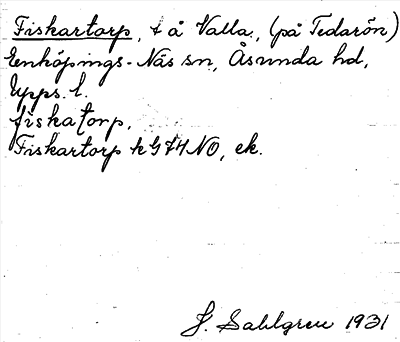 Fiskartorp, t å Valla, (på Tedarön)
Enköpings-Näs sn, Åsunda hd,
Upps. l.
fiskatorp.
Fiskartorp k G 74 NO, ek.
J. Sahlgren 1931